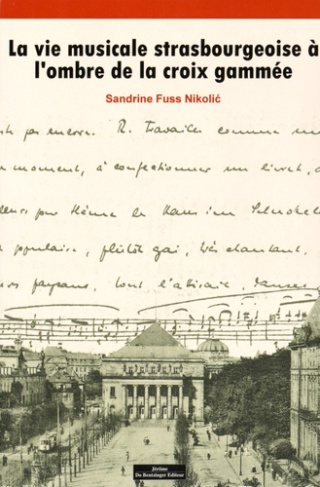 La vie musicale strasbourgeoise à
l'ombre de la croix gammée
Sandrine Fuss Nikolić
pas encore. R. Travailes comme un
moment, à confectionner un livret, d
pour
populaire, plutôt gai, très chantant,
paysans, tout l'attirait, danses
Jérôme
Do Bentzinger Editeur